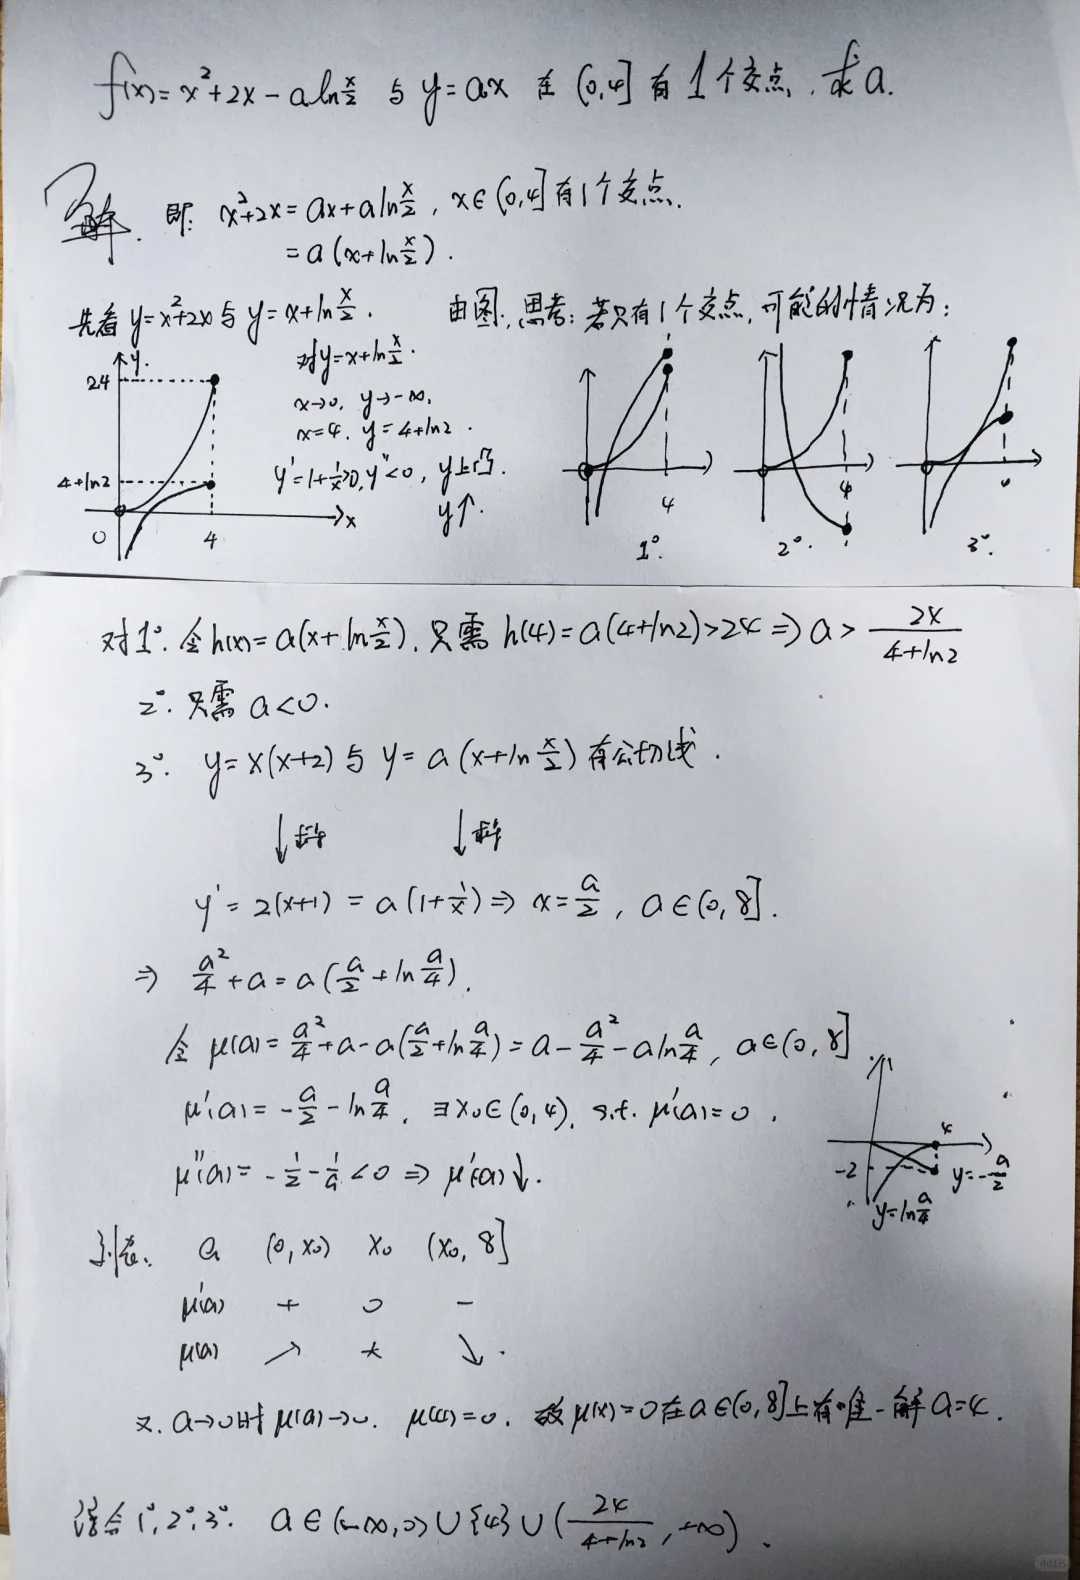 f(x)=x²+2x-aln x/2 与 y=ax 在 (0,4] 有1个交点,求a.
解. 即: x²+2x=ax+aln x/2, x∈(0,4]有1个交点.
=a(x+ln x/2).
先看 y=x²+2x与y=x+ln x/2.
由图,思考:若只有1个交点,可能的情况为:
y.
24
4+ln2
0
4
x
对y=x+ln x/2.
x→0, y→-∞,
x=4. y=4+ln2.
y'=1+1/x>0, y''<0, y上凸.
y↑.
4
1°.
4
2°.
3°.
对1°. 令h(x)=a(x+ln x/2).只需 h(4)=a(4+ln2)>24⇒a> 24/(4+ln2)
2°. 只需 a<0.
3°. y=x(x+2)与 y=a(x+ln x/2)有公切线.
↓求导 ↓求导
y'=2(x+1)=a(1+1/x)⇒x=a/2, a∈(0,8].
⇒ a²/4+a=a(a/2+ln a/4).
令 μ(a)=a²/4+a-a(a/2+ln a/4)=a-a²/4-aln a/4, a∈(0,8].
μ'(a)=-a/2-ln a/4. ∃x₀∈(0,4), s.t. μ'(a)=0.
μ''(a)=-1/2-1/a<0⇒μ'(a)↓.
4
-2
y=-a/2
y=ln a/4
列表. a (0,x₀) x₀ (x₀,8]
μ'(a) + 0 -
μ(a) ↗ 大 ↘.
又. a→0时μ(a)→0. μ(4)=0. 故μ(x)=0在a∈(0,8]上有唯一解a=4.
综合1°,2°,3°. a∈(-∞,0)∪{4}∪(24/(4+ln2),+∞).